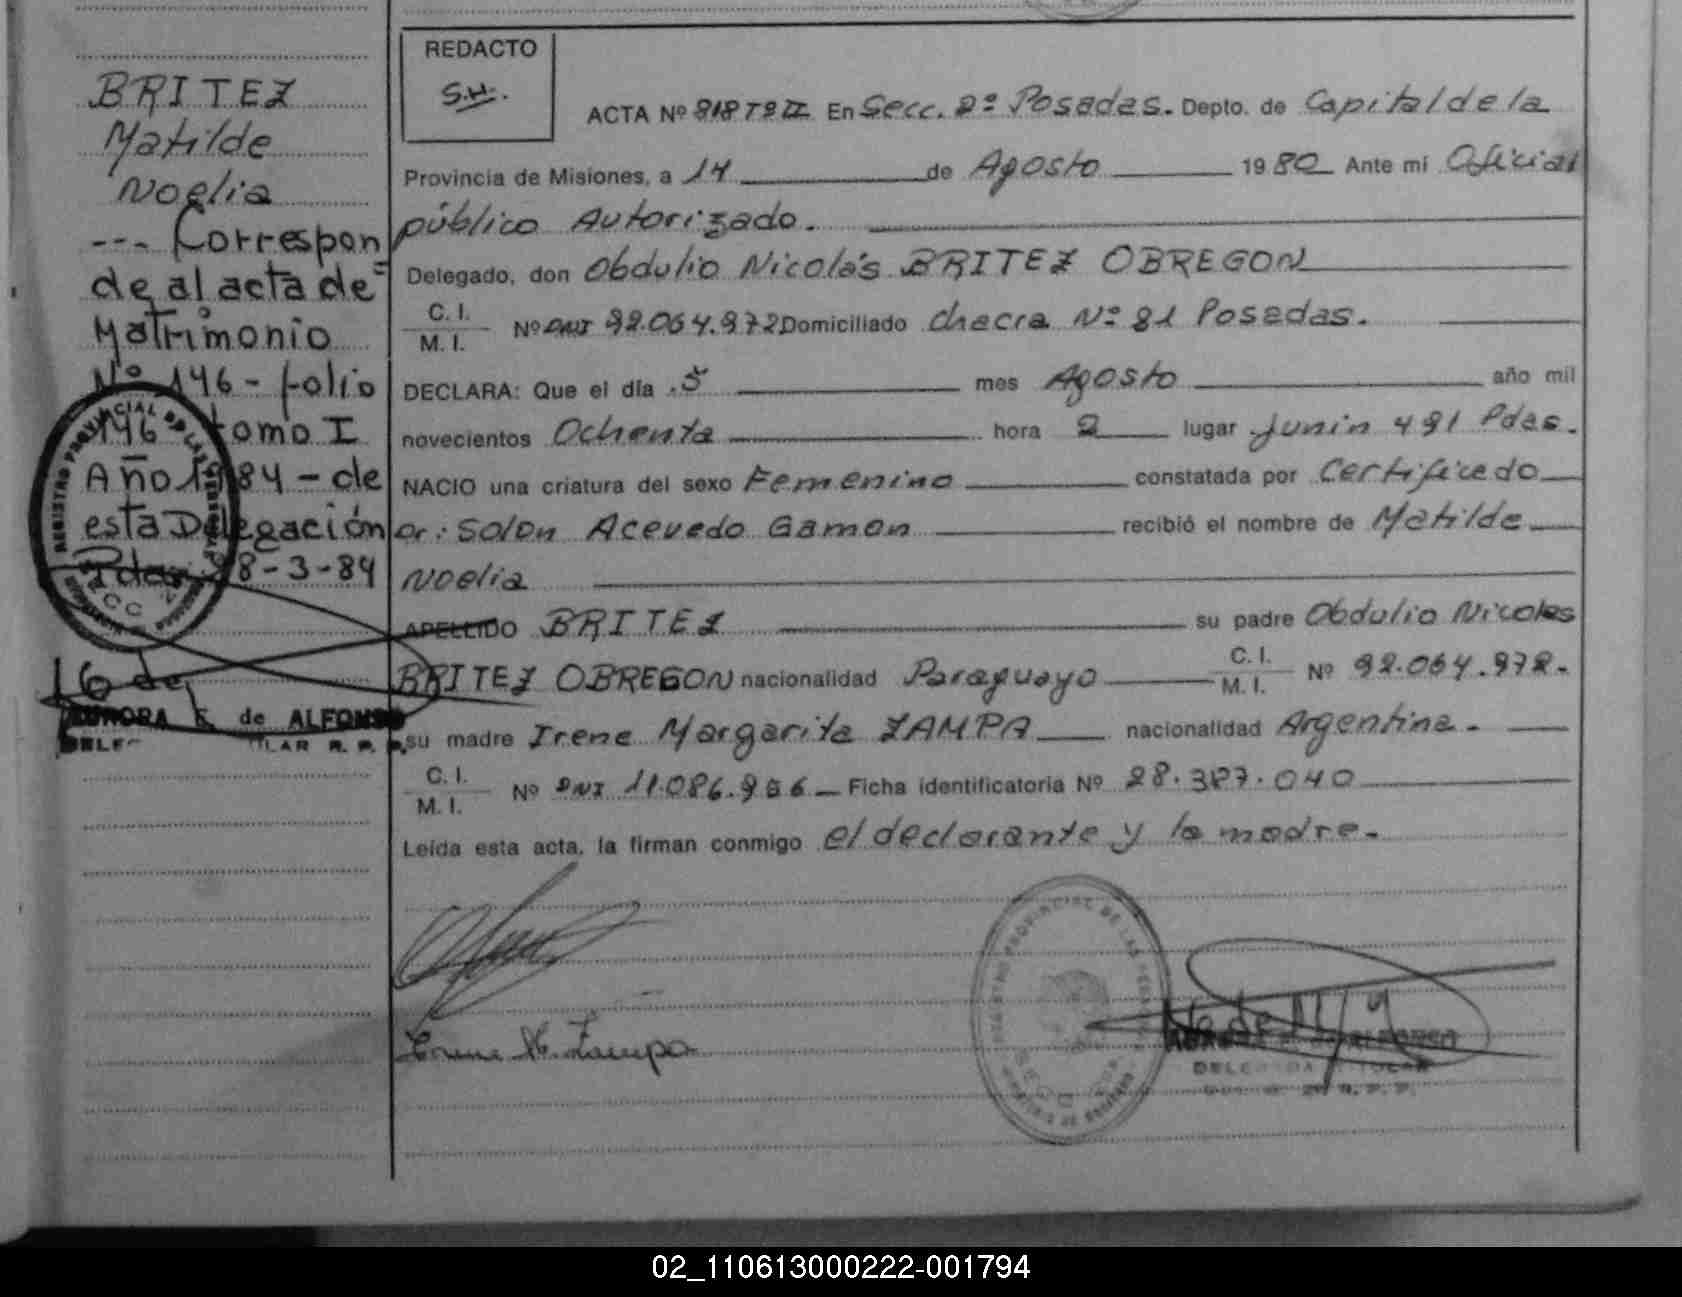 BRITEZ
Matilde
Noelia
--- Correspon
de al acta de=
Matrimonio
Nº 146 - folio
146 tomo I
Año 1984 - de
esta Delegación
Pdas. 28-3-84
AURORA E. de ALFONSO
REDACTO
S.H.
ACTA Nº 818 Tº II En Secc. 2º Posadas. Depto. de Capital de la
Provincia de Misiones, a 14 de Agosto 1980 Ante mi Oficial
público Autorizado.
Delegado, don Obdulio Nicolás BRITEZ OBREGON
C. I.
M. I. Nº DNI 92.064.972 Domiciliado checra Nº 81 Posadas.
DECLARA: Que el día 5 mes Agosto año mil
novecientos Ochenta hora 2 lugar Junin 491 Pdas.
NACIO una criatura del sexo Femenino constatada por Certificado
Dr: Solon Acevedo Gamon recibió el nombre de Matilde
Noelia
APELLIDO BRITEZ su padre Obdulio Nicolas
BRITEZ OBREGON nacionalidad Paraguayo C. I.
M. I. Nº 92.064.972.
su madre Irene Margarita ZAMPA nacionalidad Argentina.
C. I.
M. I. Nº DNI 11.086.966 Ficha identificatoria Nº 28.327.040
Leída esta acta, la firman conmigo el declarante y la madre.
Irene M. Zampa
REGISTRO PROVINCIAL DE LAS PERSONAS
02_110613000222-001794